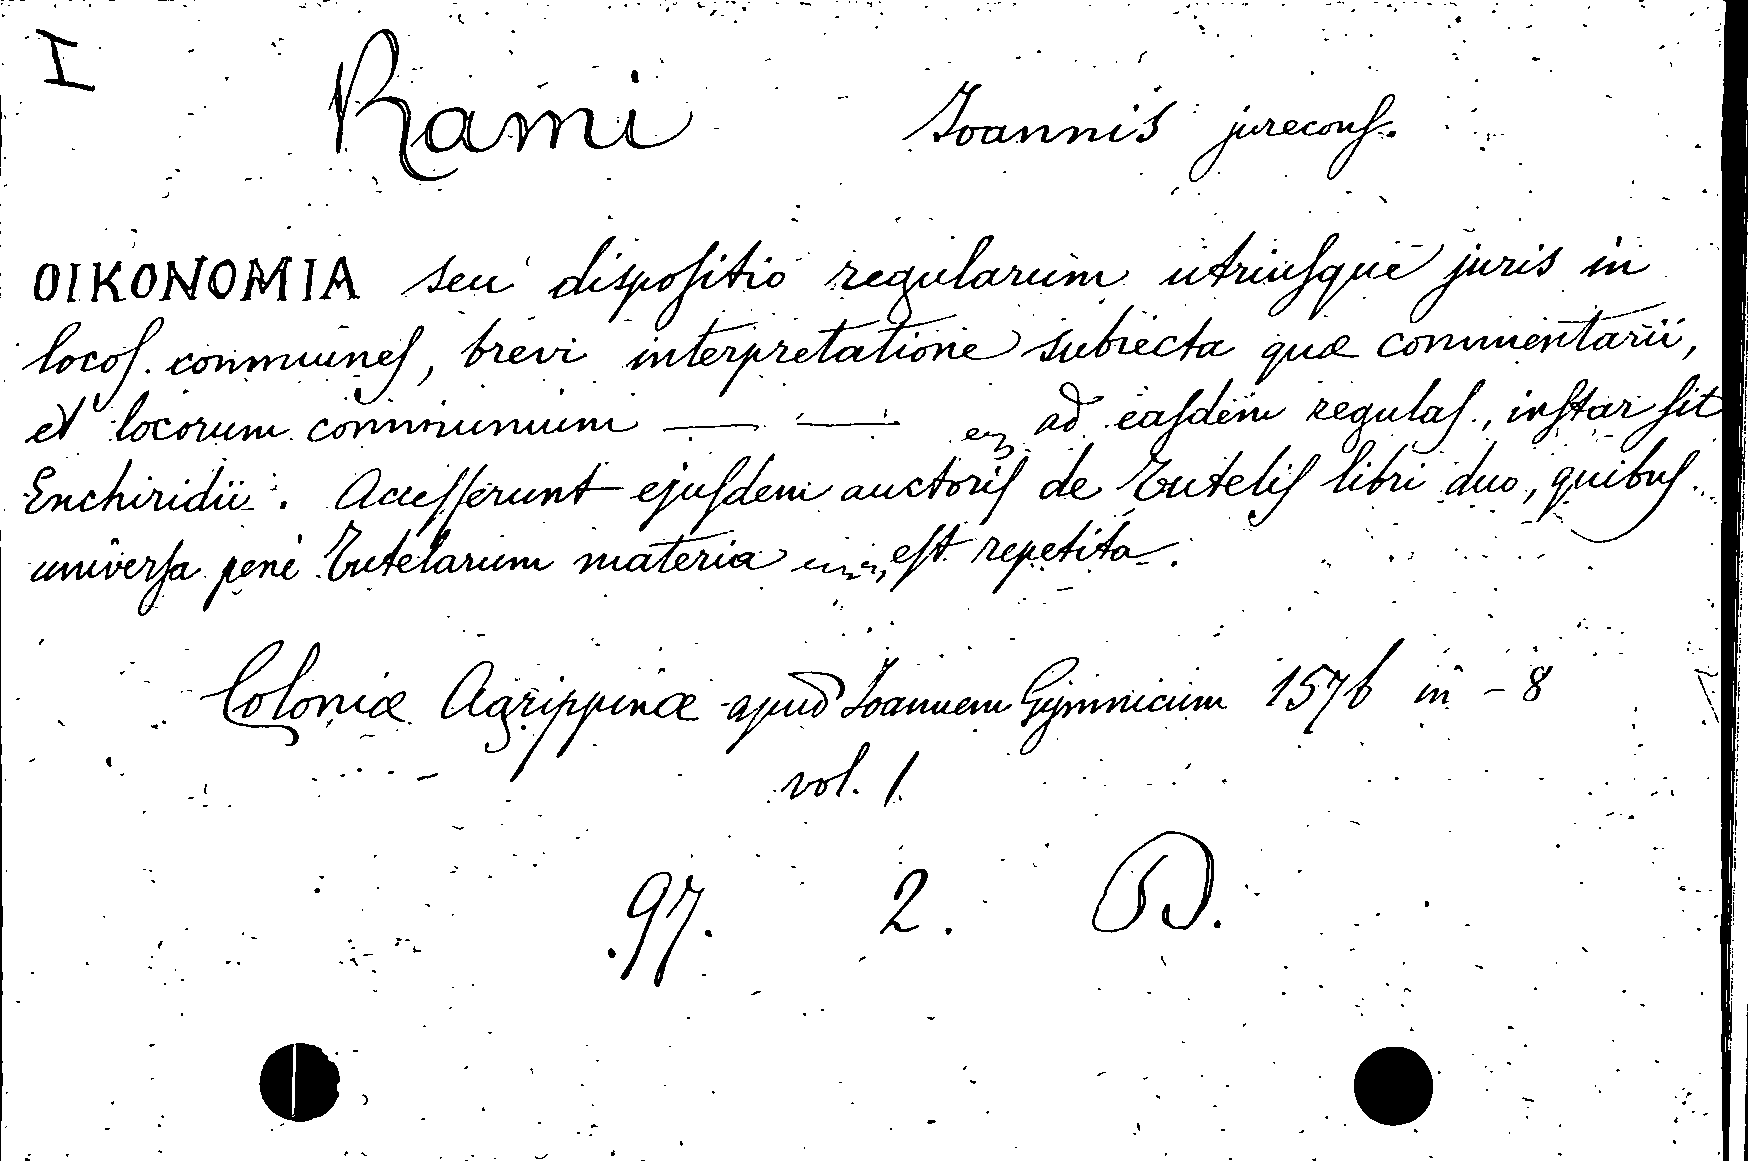 I
Rami Ioannis jureconſ.
OIKONOMIA seu dispoſitio regularum utriuſque juris in
locoſ communeſ, brevi interpretatione subiecta quæ commentarii,
et locorum communium — — ad eaſdem regulaſ, inſtar ſit
Enchiridii. Acceſſerunt ejuſdem auctoriſ de Tuteliſ libri duo, quibuſ
univerſa penè Tutelarum materia eſt repetita.
Coloniæ Agrippinæ apud Ioannem Gymnicum 1576 in - 8
vol. 1
97. 2. D.